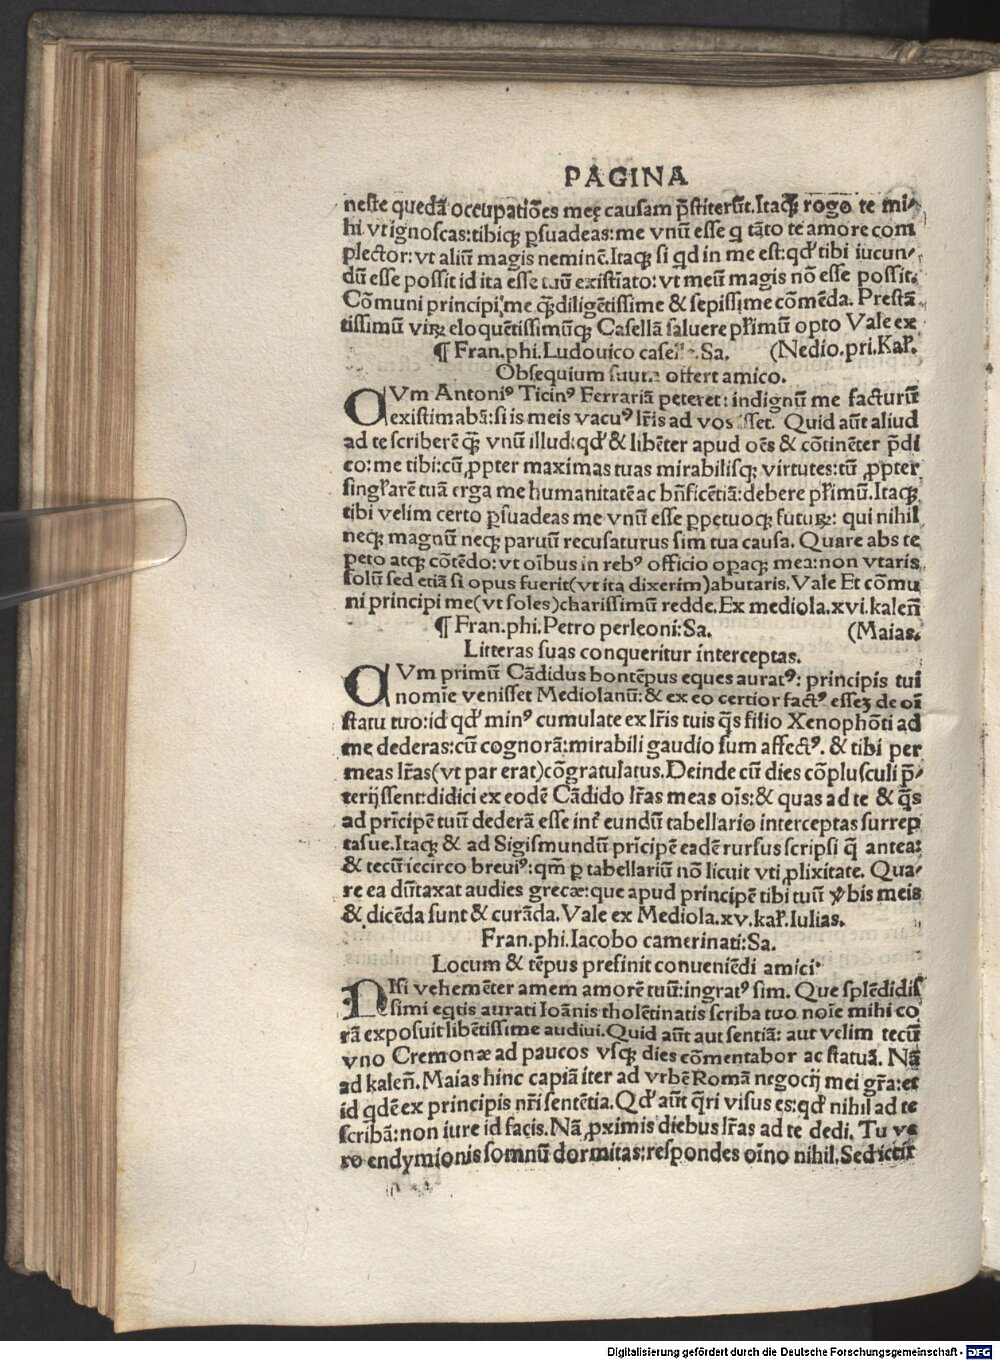 PAGINA
neste quedā occupatiões meę causam p̄stiterūt.Itaqꝫ rogo te mi⸗
hi vt ignoscas:tibiqꝫ ꝑsuadeas:me vnū esse q tāto te amore com
plector:vt aliū magis neminē.Itaqꝫ si qd in me est:qđ tibi iucun⸗
dū esse possit id ita esse tuū existīato: vt meū magis nō esse possit.
Cōmuni principi me q̄ꝫdiligētissime & sepissime cōmēda. Prestā
tissimū viꝝ eloquētissimūqꝫ Casellā saluere pl̄rimū opto Vale ex
¶ Fran.phi.Ludouico Sa. (Nedio.pri.Kal̄.
Obsequium suum offert amico.
CVm Antoniꝰ Ticinꝰ Ferrariā peteret: indignū me facturū
existimabā:si is meis vacuꝰ lr̄is ad vos Quid aūt aliud
ad te scriberē q̄ꝫ vnū illud:qđ & libēter apud oēs & cōtinēter p̄di
co:me tibi:cū ꝓpter maximas tuas mirabilisqꝫ virtutes:tū ꝓpter
singl̄arē tuā erga me humanitatē ac bn̄ficētiā:debere pl̄rimū.Itaqꝫ
tibi velim certo ꝑsuadeas me vnū esse ꝑpetuoqꝫ futuꝝ: qui nihil
neqꝫ magnū neqꝫ paruū recusaturus sim tua causa. Quare abs te
peto atqꝫ cōtēdo: vt oībus in rebꝰ officio opaqꝫ mea:non vtaris
solū sed etiā si opus fuerit(vt ita dixerim)abutaris.Vale Et cōmu
ni principi me(vt soles)charissimū redde.Ex mediola.xvi.kalen̄
¶ Fran.phi.Petro perleoni:Sa. (Maias.
Litteras suas conqueritur interceptas.
CVm primū Cādidus bontēpus eques auratꝰ: principis tui
nomīe venisset Mediolanū:& ex eo certior factꝰ esseꝫ de oī
statu tuo:id qđ minꝰ cumulate ex lr̄is tuis q̄s filio Xenophōti ad
me dederas:cū cognorā:mirabili gaudio sum affectꝰ. & tibi per
meas lr̄as(vt par erat)cōgratulatus.Deinde cū dies cōplusculi p̄⸗
terijssent:didici ex eodē Cādido lr̄as meas oīs:& quas ad te & q̄s
ad prīcipē tuū dederā esse int̄ eundū tabellario interceptas surrep
tasue.Itaqꝫ & ad Sigismundū prīcipē eadē rursus scripsi q̄ antea:
& tecū iccirco breuiꝰ:qm̄ p tabellariū nō licuit vti ꝓlixitate. Qua⸗
re ea dūtaxat audies grecæ:que apud principē tibi tuū ꝟbis meis
& dicēda sunt & curāda.Vale ex Mediola.xv.kal̄.Iulias.
Fran.phi.Iacobo camerinati:Sa.
Locum & tēpus prefinit conueniēdi amici
NIsi vehemēter amem amorē tuū:ingratꝰ sim. Que splēdidis
simi eq̄tis aurati Ioānis tholētinatis scriba tuo noīe mihi co
rā exposuit libētissime audiui.Quid aūt aut sentiā: aut velim tecū
vno Cremonæ ad paucos vsqꝫ dies cōmentabor ac statuā. Nā
ad kalen̄.Maias hinc capiā iter ad vrbē Romā negocij mei gr̄a:et
id qdē ex principis nr̄i sentētia.Qđ aūt q̄ri visus es:qđ nihil ad te
scribā:non iure id facis.Nā ꝓximis diebus lr̄as ad te dedi. Tu ve
ro endymionis somnū dormitas:respondes oīno nihil.Sed ictir
Digitalisierung gefördert durch die Deutsche Forschungsgemeinschaft - DFG